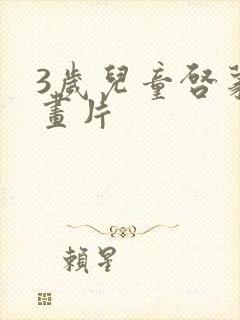 3歲兒童啓蒙
畫片
賴星